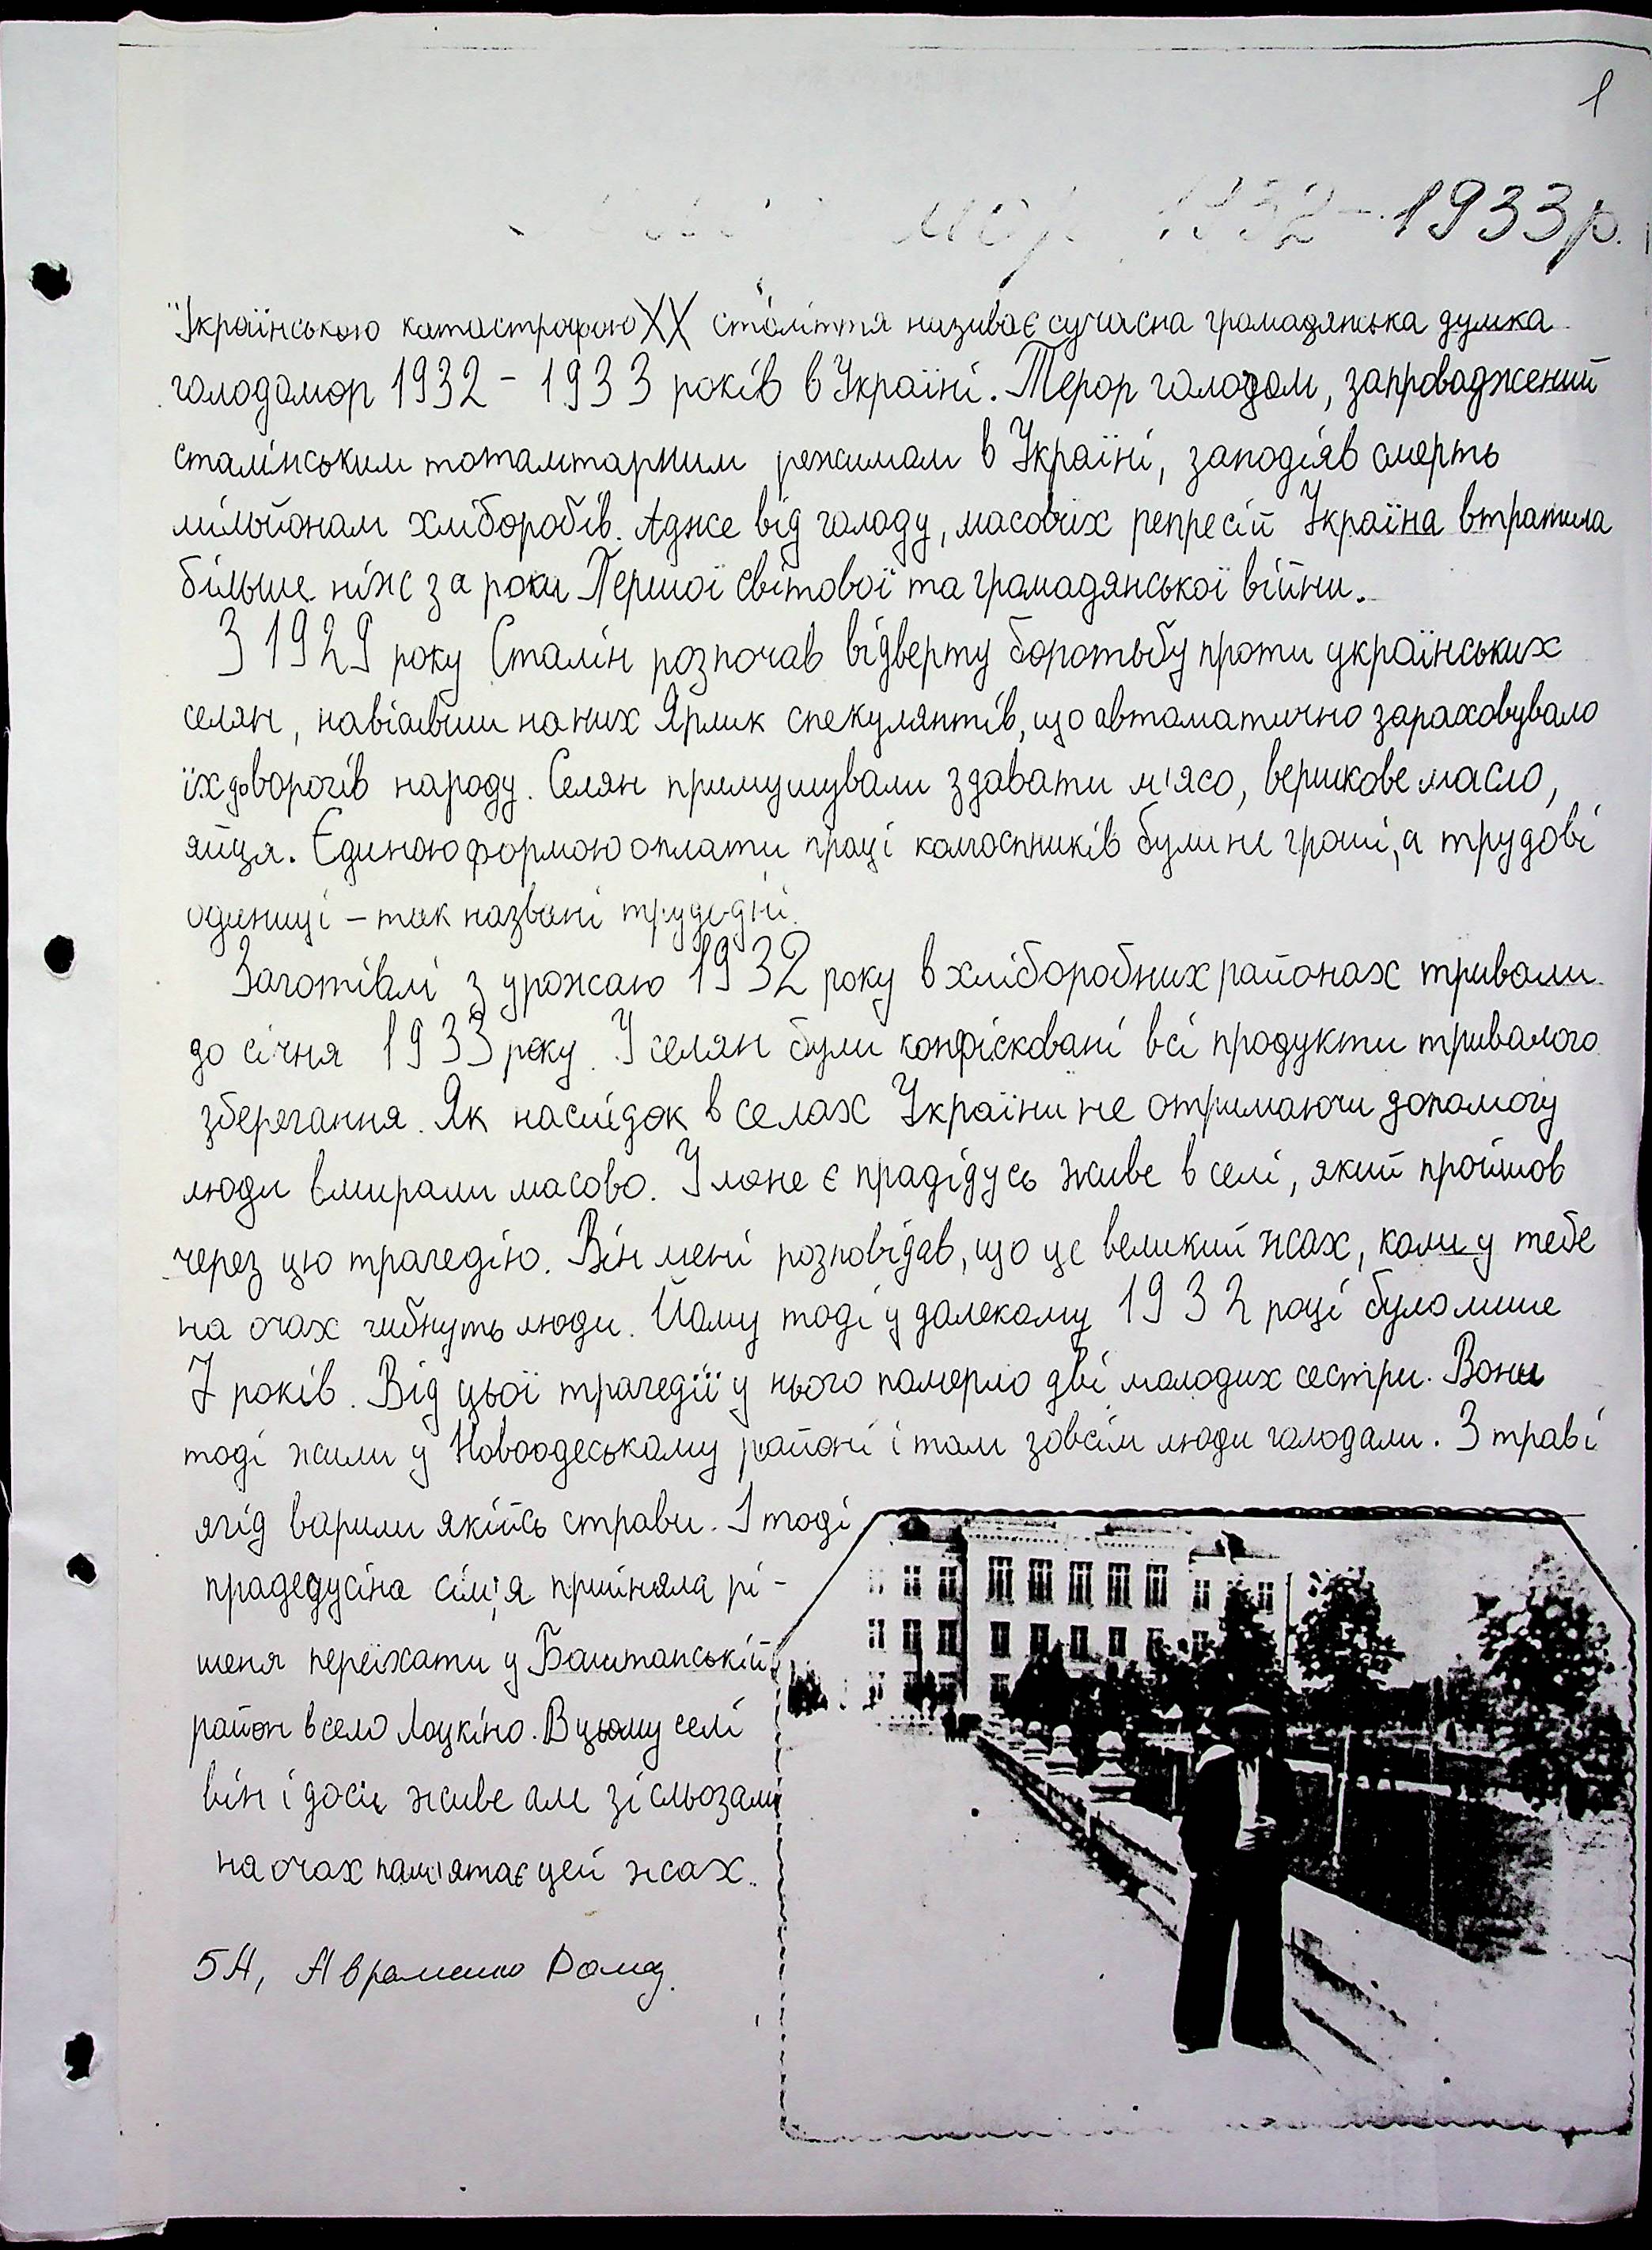 1
мор 1932-1933р.
"Українською катастрофою XX століття називає сучасна громадянська думка
голодомор 1932 - 1933 років в Україні. Терор голодом, запроваджений
сталінським тоталітарним режимом в Україні, заподіяв смерть
мільйонам хліборобів. Адже від голоду, масових репресій Україна втратила
більше ніж за роки Першої світової та громадянської війни.
З 1929 року Сталін розпочав відверту боротьбу проти українських
селян, навісивши на них Ярлик спекулянтів, що автоматично зараховувало
їх до ворогів народу. Селян примушували здавати м'ясо, вершкове масло,
яйця. Єдиною формою оплати праці колгоспників були не гроші, а трудові
одиниці – так названі трудодні.
Заготівлі з урожаю 1932 року в хліборобних районах тривали
до січня 1933 року. У селян були конфісковані всі продукти тривалого
зберегання. Як наслідок в селах України не отримаючи допомогу
люди вмирали масово. У мене є прадідусь живе в селі, який пройшов
через цю трагедію. Він мені розповідав, що це великий жах, коли у тебе
на очах гибнуть люди. Йому тоді у далекому 1932 році було лише
7 років. Від цьої трагедії у нього померло дві молодих сестри. Вони
тоді жили у Новоодеському районі і там зовсім люди голодали. З трав і
ягід варили якійсь страви. І тоді
прадедусіна сім'я прийняла рі-
шеня переїхати у Баштанській
район в село Лоцкіно. В цьому селі
він і досі живе але зі сльозами
на очах пам'ятає цей жах.
5А, Авраменко Рома.